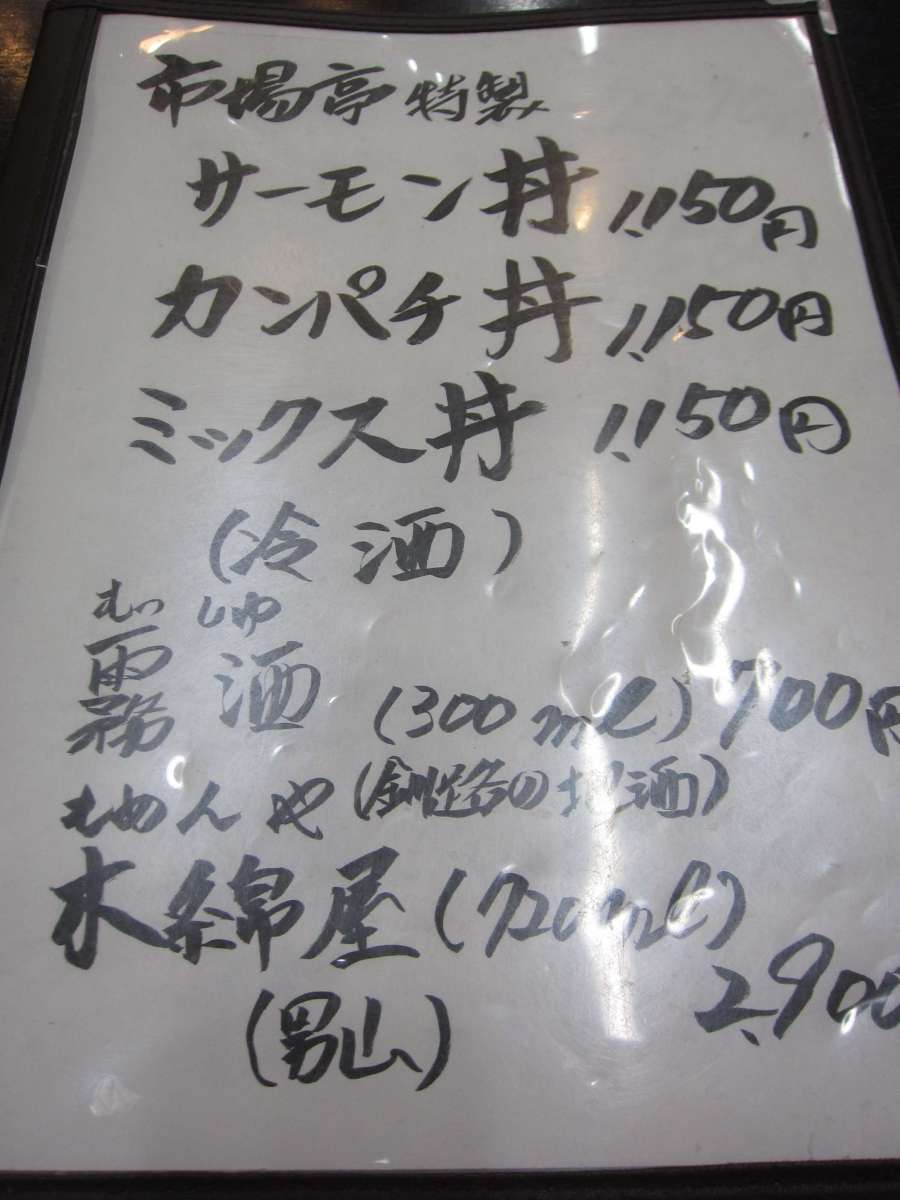 市場亭 特製
サーモン丼 1,150円
カンパチ丼 1,150円
ミックス丼 1,150円
(冷酒)
むっ しゅ
霧酒 (300ml) 700円
(釧路の地酒)
もめんや
木綿屋 (720ml)
2,900
(男山)